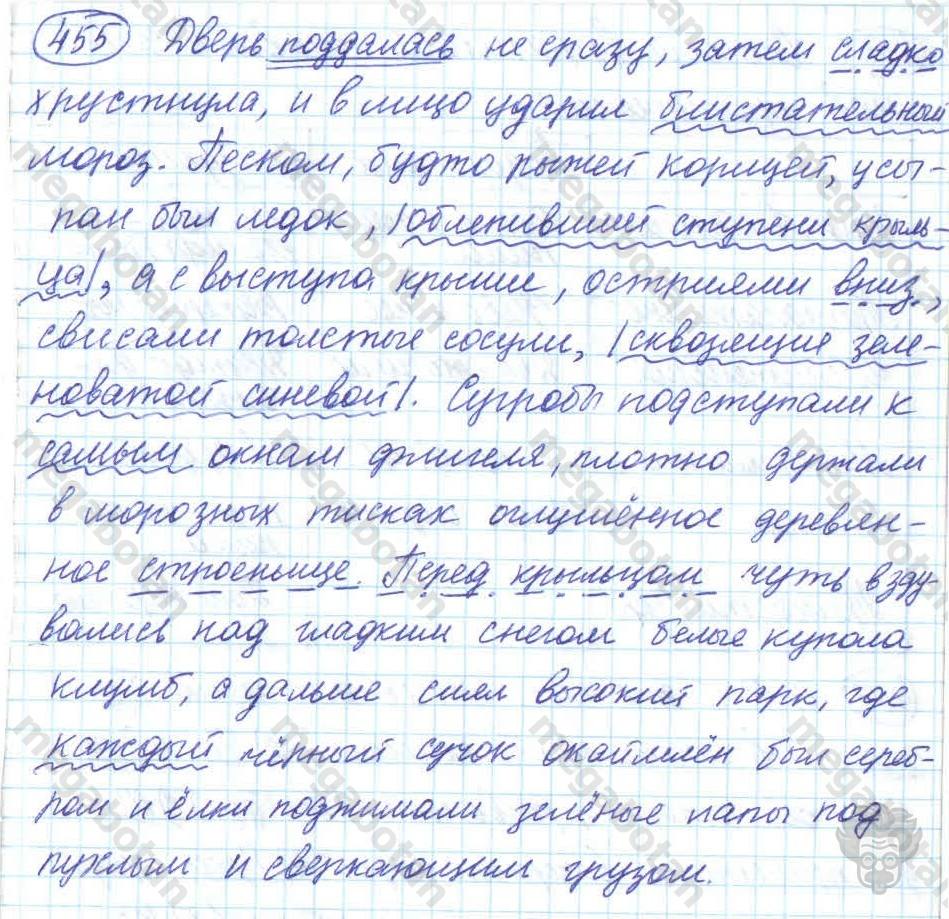 455 Дверь поддалась не сразу, затем сладко
хрустнула, и в лицо ударил блистательный
мороз. Песком, будто рыжей корицей, усы-
пан был ледок, |облепивший ступени крыль-
ца|, а с выступа крыши, остриями вниз,
свисали толстые сосули, |сквозящие зеле-
новатой синевой|. Сугробы подступали к
самым окнам флигеля, плотно держали
в морозных тисках оглушённое деревян-
ное строеньице. Перед крыльцом чуть взду-
вались над гладким снегом белые купола
клумб, а дальше сиял высокий парк, где
каждый чёрный сучок окаймлён был сереб-
ром и ёлки поджимали зелёные лапы под
пухлым и сверкающим грузом.
megabotan